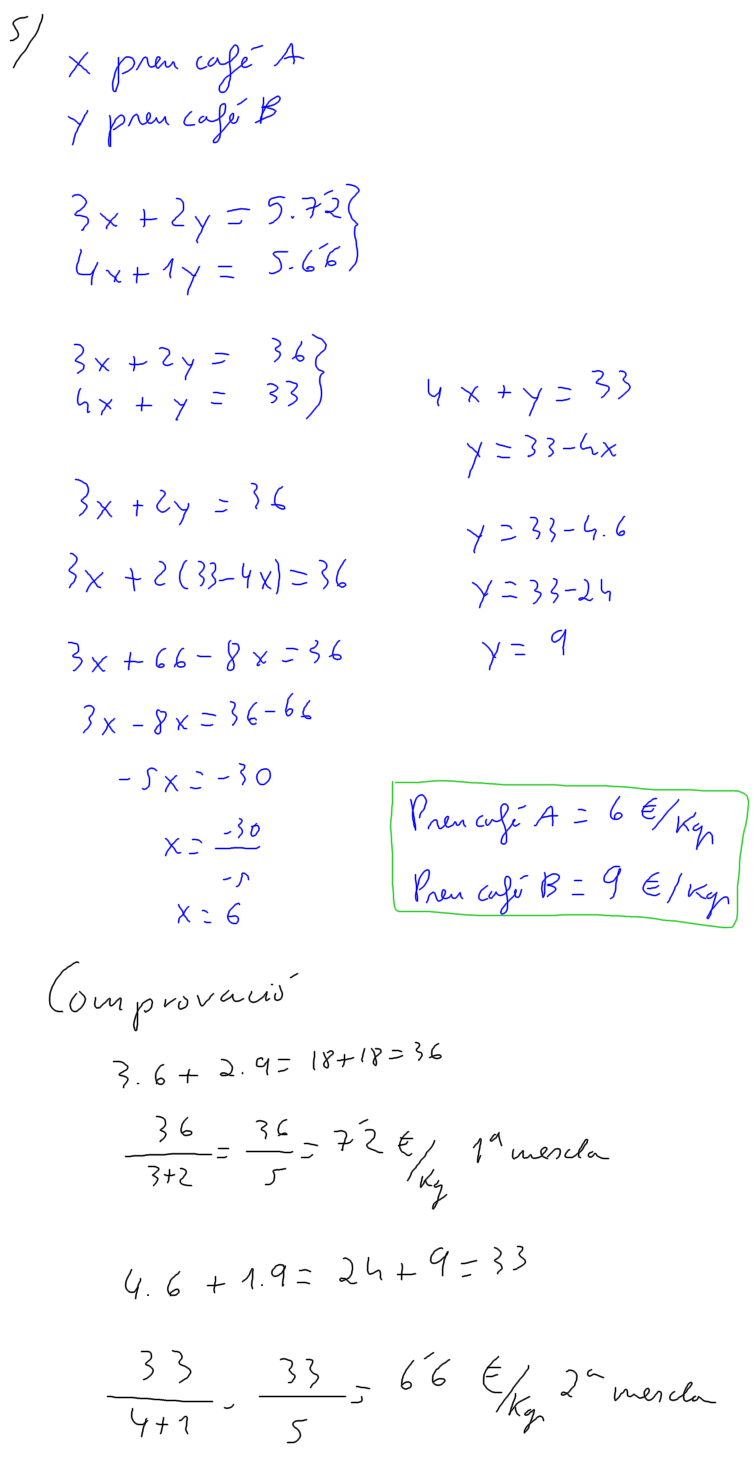 5)
x preu café A
y preu café B
3x + 2y = 5·7'2 }
4x + 1y = 5·6'6 }
3x + 2y = 36 }
4x + y = 33 }
3x + 2y = 36
3x + 2(33-4x) = 36
3x + 66 - 8x = 36
3x - 8x = 36 - 66
-5x = -30
x = -30/-5
x = 6
4x + y = 33
y = 33 - 4x
y = 33 - 4·6
y = 33 - 24
y = 9
Preu café A = 6 €/Kgr
Preu café B = 9 €/Kgr
Comprovació
3·6 + 2·9 = 18 + 18 = 36
36/3+2 = 36/5 = 7'2 €/Kg 1ª mescla
4·6 + 1·9 = 24 + 9 = 33
33/4+1 = 33/5 = 6'6 €/Kgr 2ª mescla